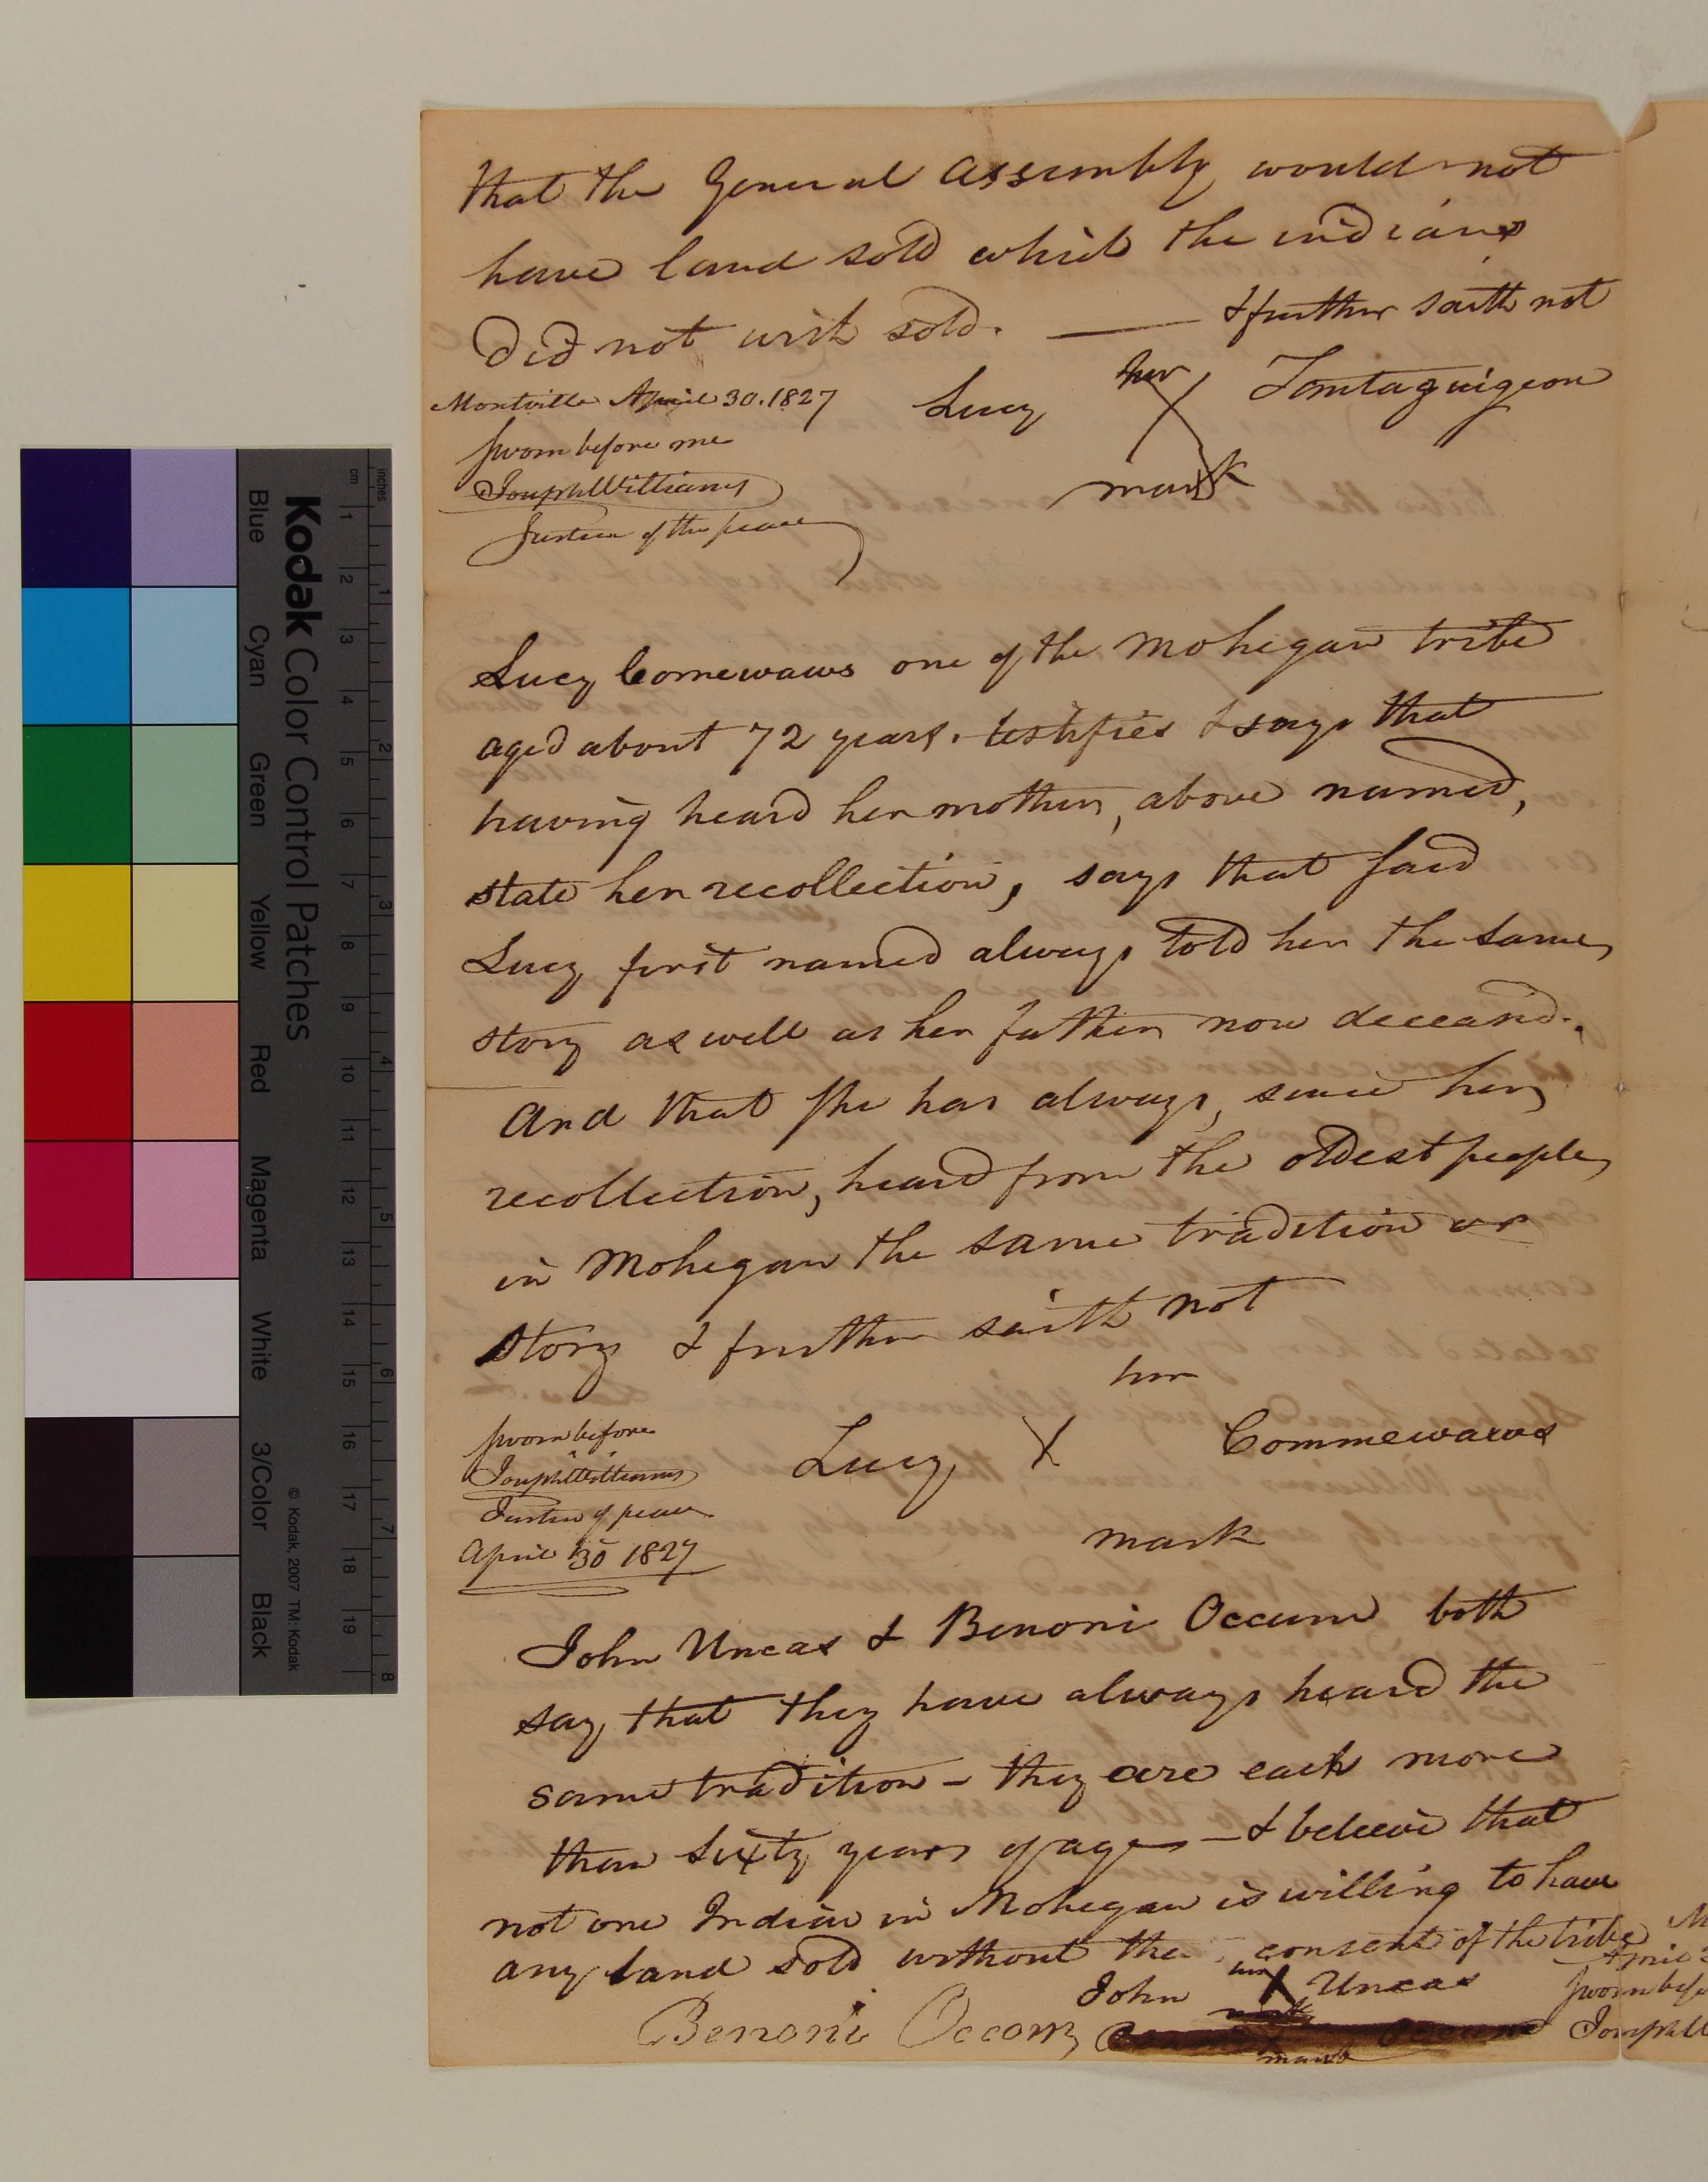 that the General assembly would not
have land sold which the indians
did not wish sold. — & further saith not
Montville April 30. 1827
Sworn before me
Joseph Williams
Justice of the peace
her
Lucy X Tantaquigeon
mark
Lucy Comewaws one of the Mohegan tribe
aged about 72 years. testifies & says that
having heard her mother, above named,
state her recollection, says that said
Lucy first named always told her the same
story as well as her father now deceasd.
And that she has always, since her
recollection, heard from the oldest people
in Mohegan the same tradition or
story & further saith not
her
Lucy X Commewaws
mark
Sworn before
Joseph Williams
Justice of peace
April 30 1827
John Uncas & Benoni Occum both
say that they have always heard the
same tradition – they are each more
than sixty years of age – & believe that
not one Indian in Mohegan is willing to have
any land sold without the consent of the tribe
his
John X Uncas
mark
Benoni Occom
mark
Sworn befo
Joseph W
Kodak Color Control Patches
Blue Cyan Green Yellow Red Magenta White 3/Color Black
© Kodak, 2007 TM: Kodak
cm 1 2 3 4 5 6 7 8 9 10 11 12 13 14 15 16 17 18 19
inches 1 2 3 4 5 6 7 8